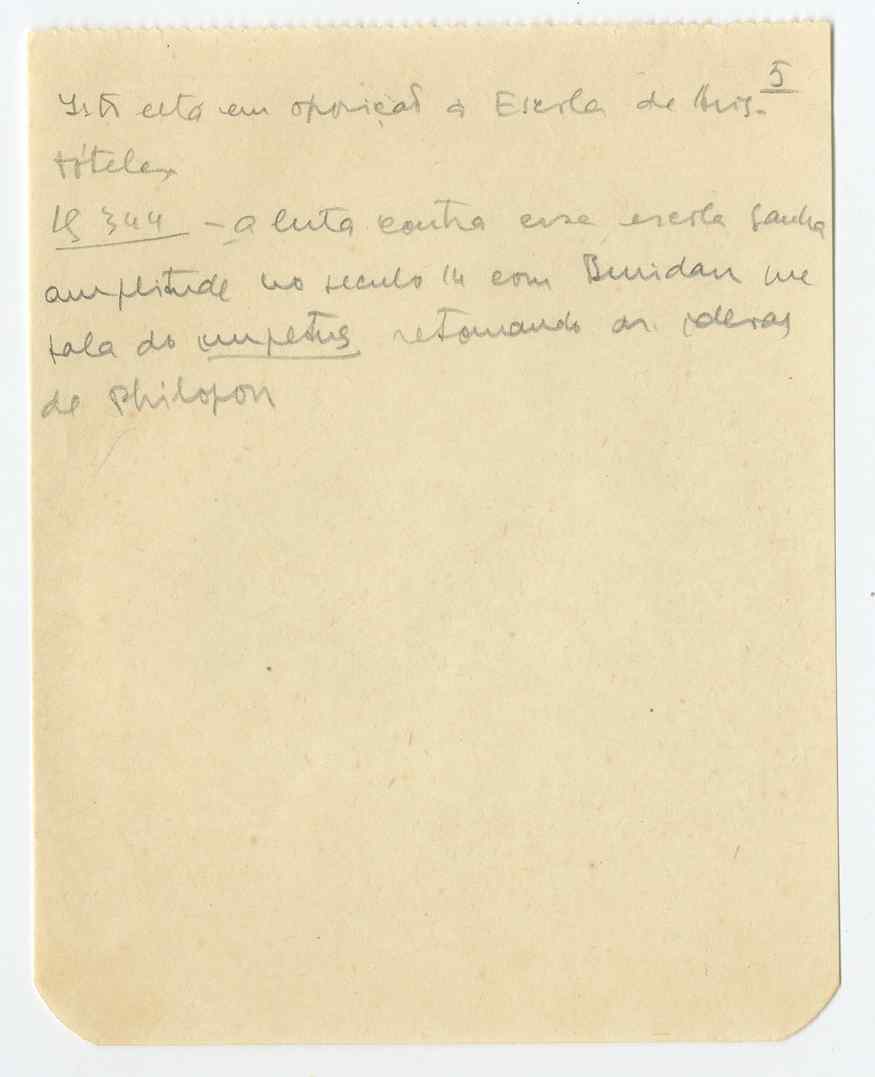 5
Isto está em oposição à Escola de Aris-
tóteles
pg 344 - a luta contra essa escola ganha
amplitude no seculo 14 com Buridan que
fala do impetus retomando as ideias
de Philopon